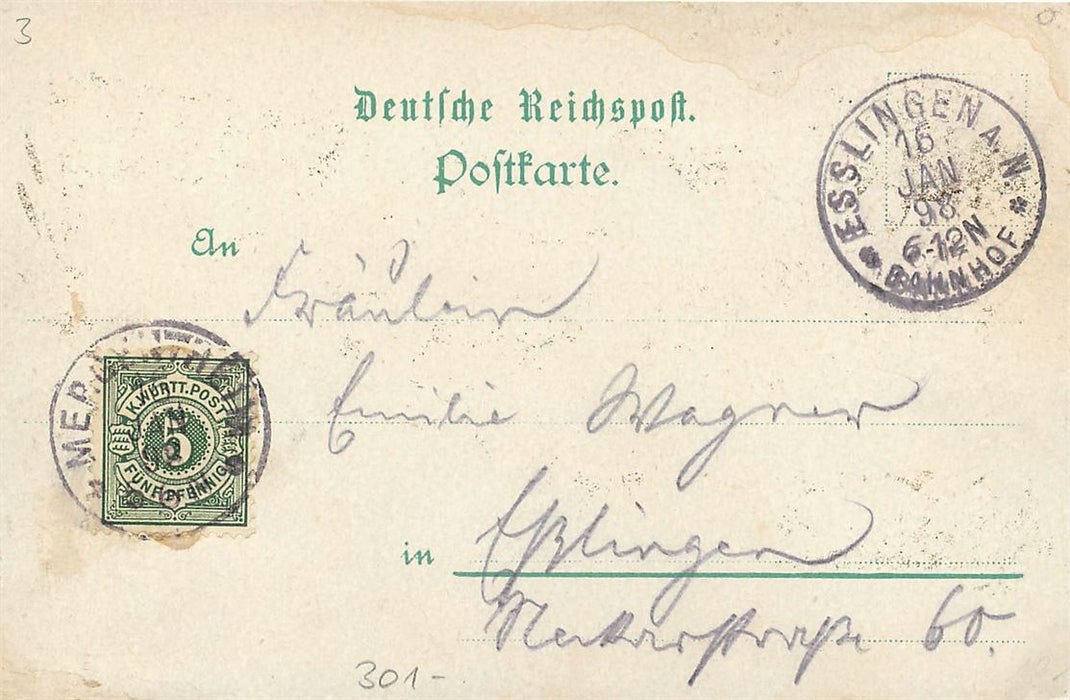 3
Deutsche Reichspost.
Postkarte.
ESSLINGEN A. N.
16
JAN
98
6-12N
BAHNHOF
An
Fräulein
Emilie Wagner
K. WÜRTT. POST
5
FÜNF PFENNIG
in
Eßlingen
Neckarstraße 60.
301-